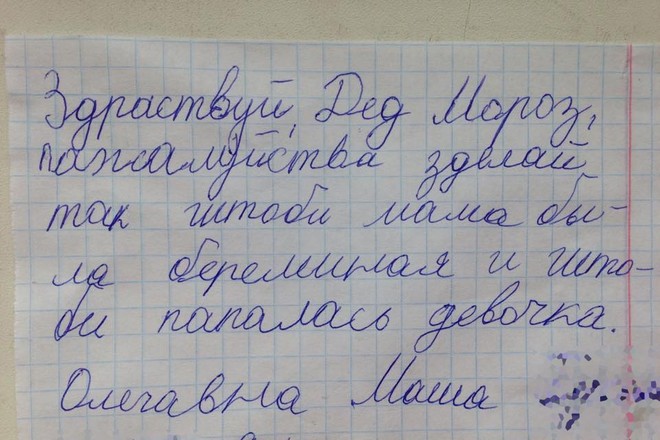 Здраствуй, Дед Мороз,
пажалуйства зделай
так штоби мама бы-
ла береминая и што-
би папалась девочка.
Олечавна Маша